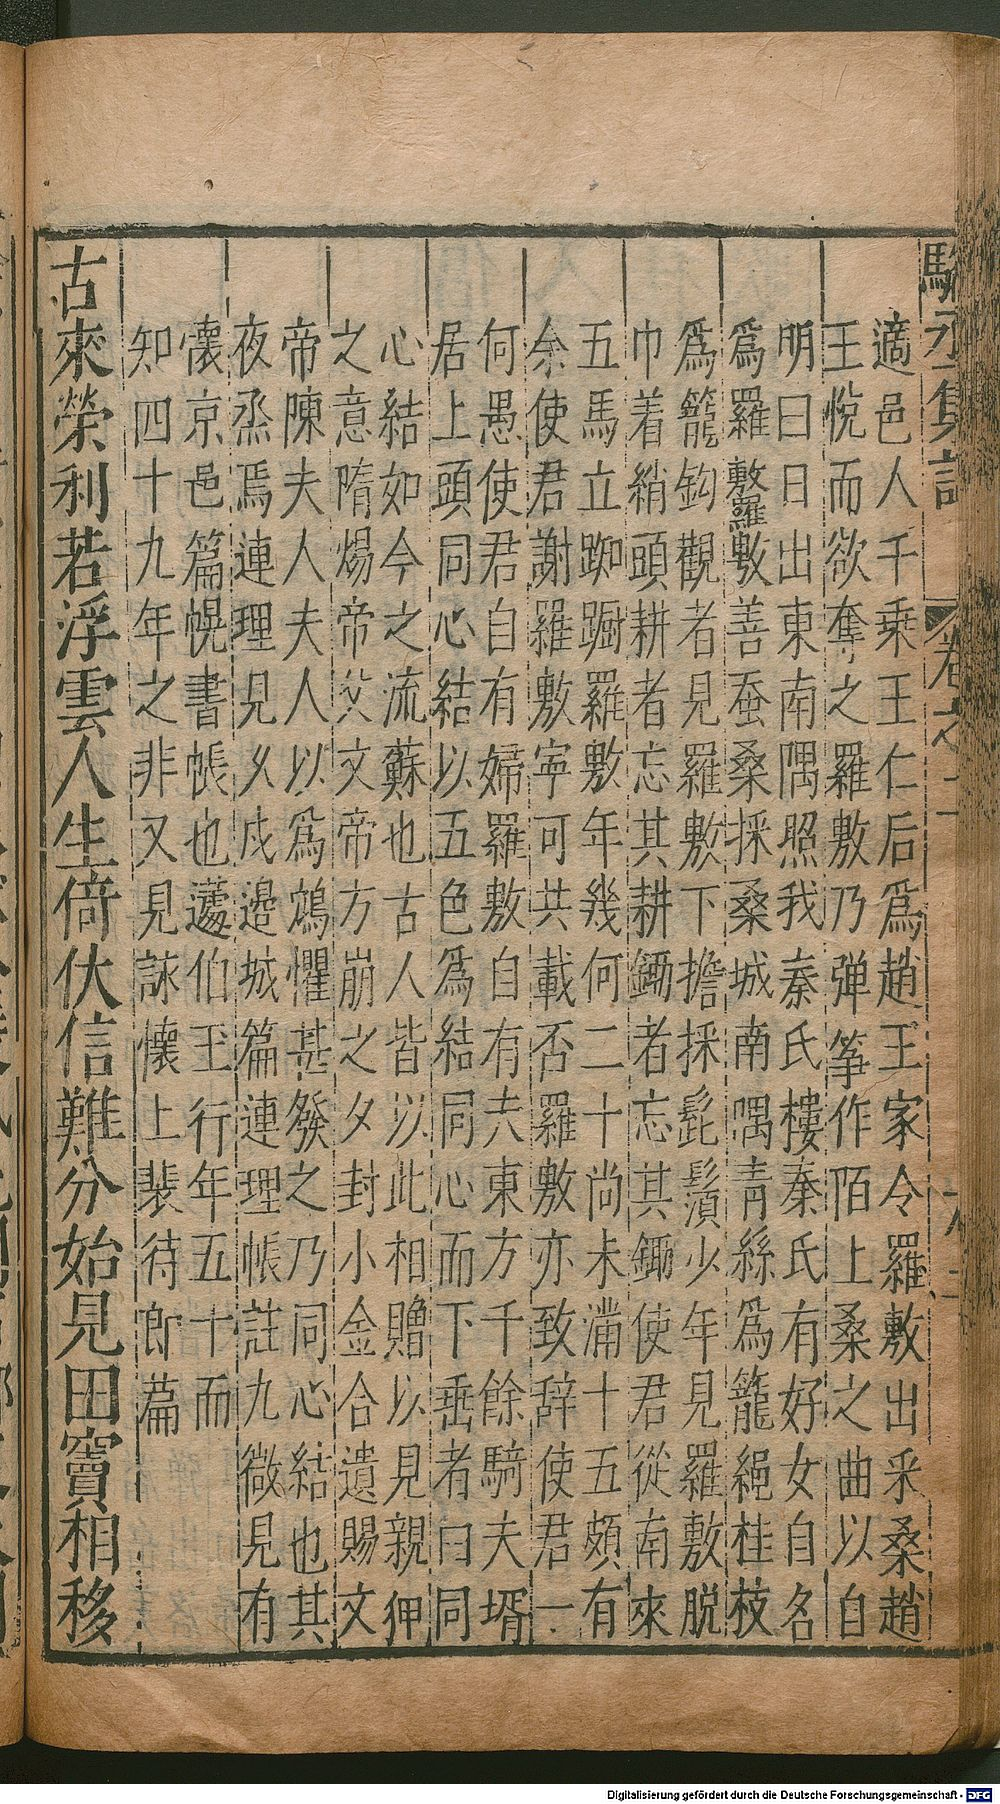 駱丞集註 卷之二
適邑人千乗王仁后爲趙王家令羅敷出采桑趙
王悅而欲奪之羅敷乃弹筝作陌上桑之曲以自
明曰日出東南隅照我秦氏樓秦氏有好女自名
爲羅敷羅敷善蚕桑採桑城南隅青絲爲籠繩桂枝
爲籠鈎觀者見羅敷下擔採髭鬚少年見羅敷脱
巾着綃頭耕者忘其耕鋤者忘其鋤使君從南來
五馬立踟蹰羅敷年幾何二十尚未滿十五頗有
余使君謝羅敷寧可共載否羅敷亦致辞使君一
何愚使君自有婦羅敷自有夫東方千餘騎夫壻
居上頭同心結以五色爲結同心而下垂者曰同
心結如今之流蘇也古人皆以此相贈以見親狎
之意隋煬帝父文帝方崩之夕封小金合遺賜文
帝陳夫人夫人以爲鴆懼甚發之乃同心結也其
夜烝焉連理見夂戍邉城篇連理帳註九微見有
懐京邑篇幌書帳也蘧伯玉行年五十而
知四十九年之非又見詠懐上裴待郎篇
古來榮利若浮雲人生倚伏信難分始見田竇相移
Digitalisierung gefördert durch die Deutsche Forschungsgemeinschaft - DFG